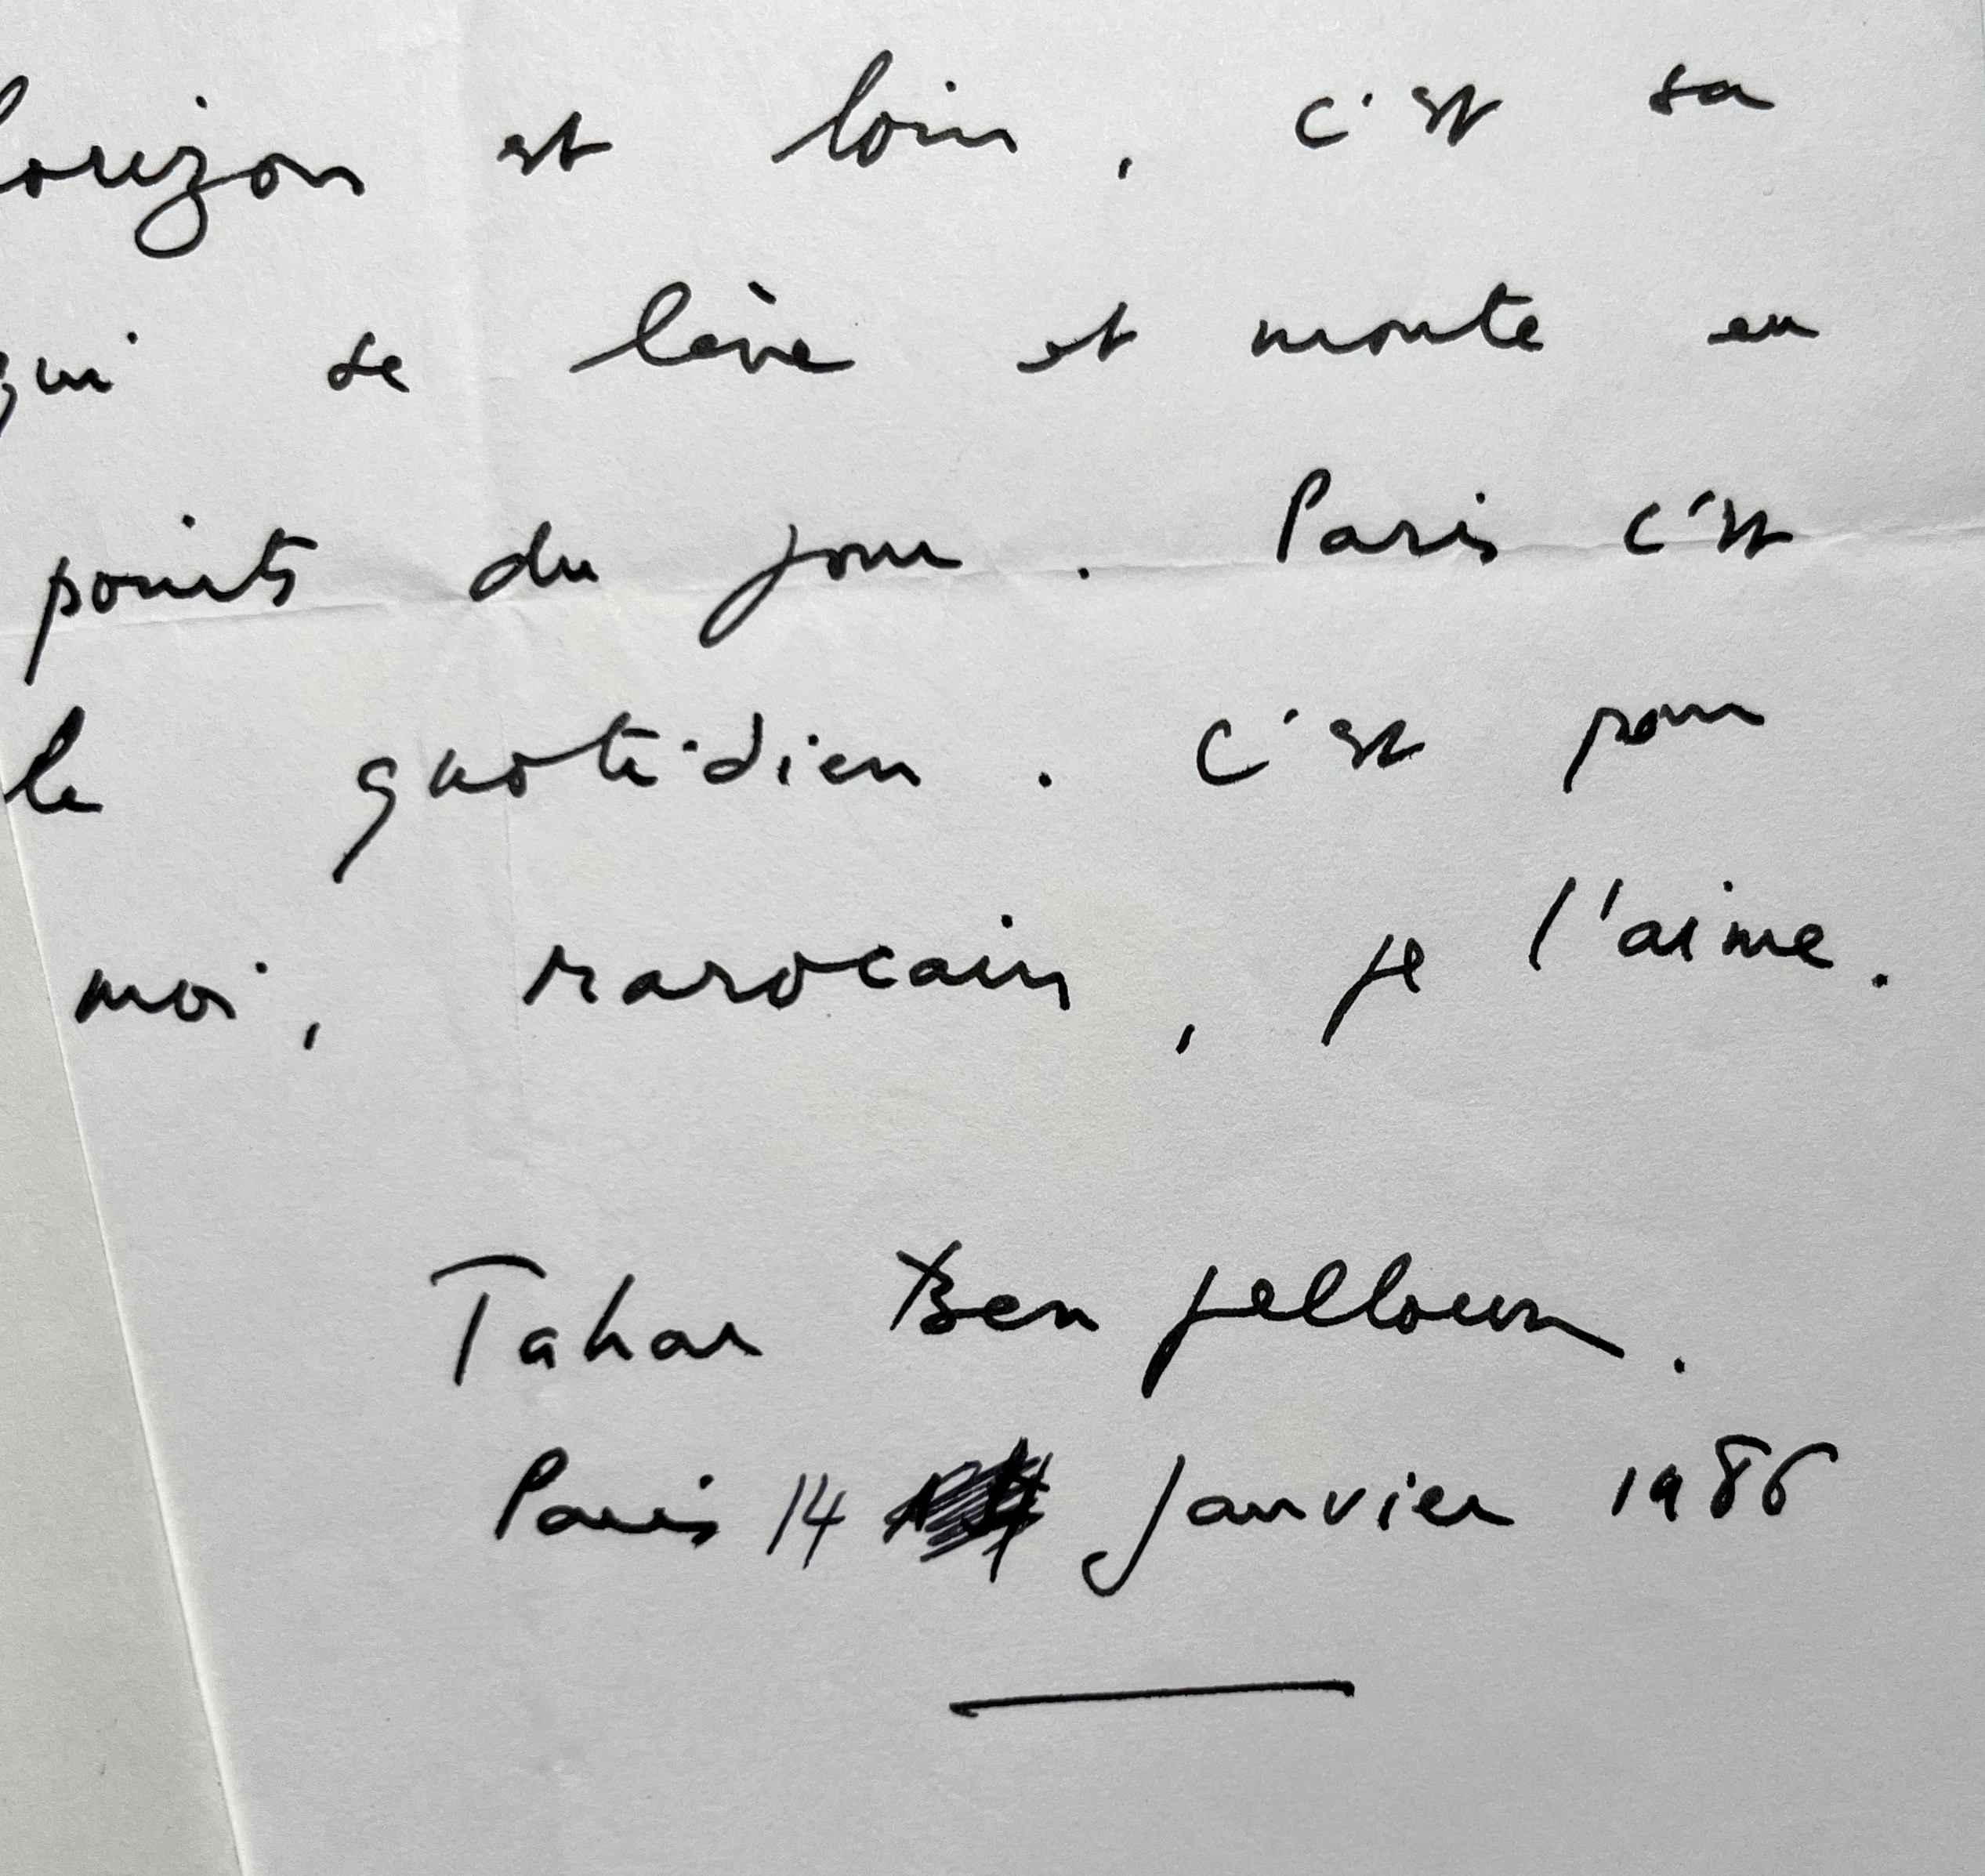 horizon est loin, c'est sa
qui se lève et monte en
points du jour. Paris c'est
le quotidien. C'est pour
moi, marocain, je l'aime.
Tahar Ben Jelloun.
Paris 14 Janvier 1986